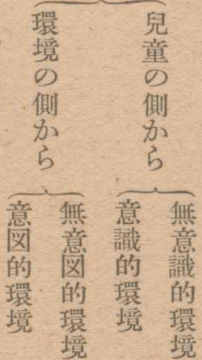 兒童の側から
無意識的環境
意識的環境
環境の側から
無意図的環境
意図的環境